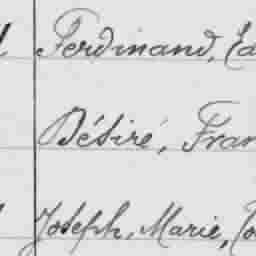 Ferdinand,
Désiré,
Joseph, Marie,